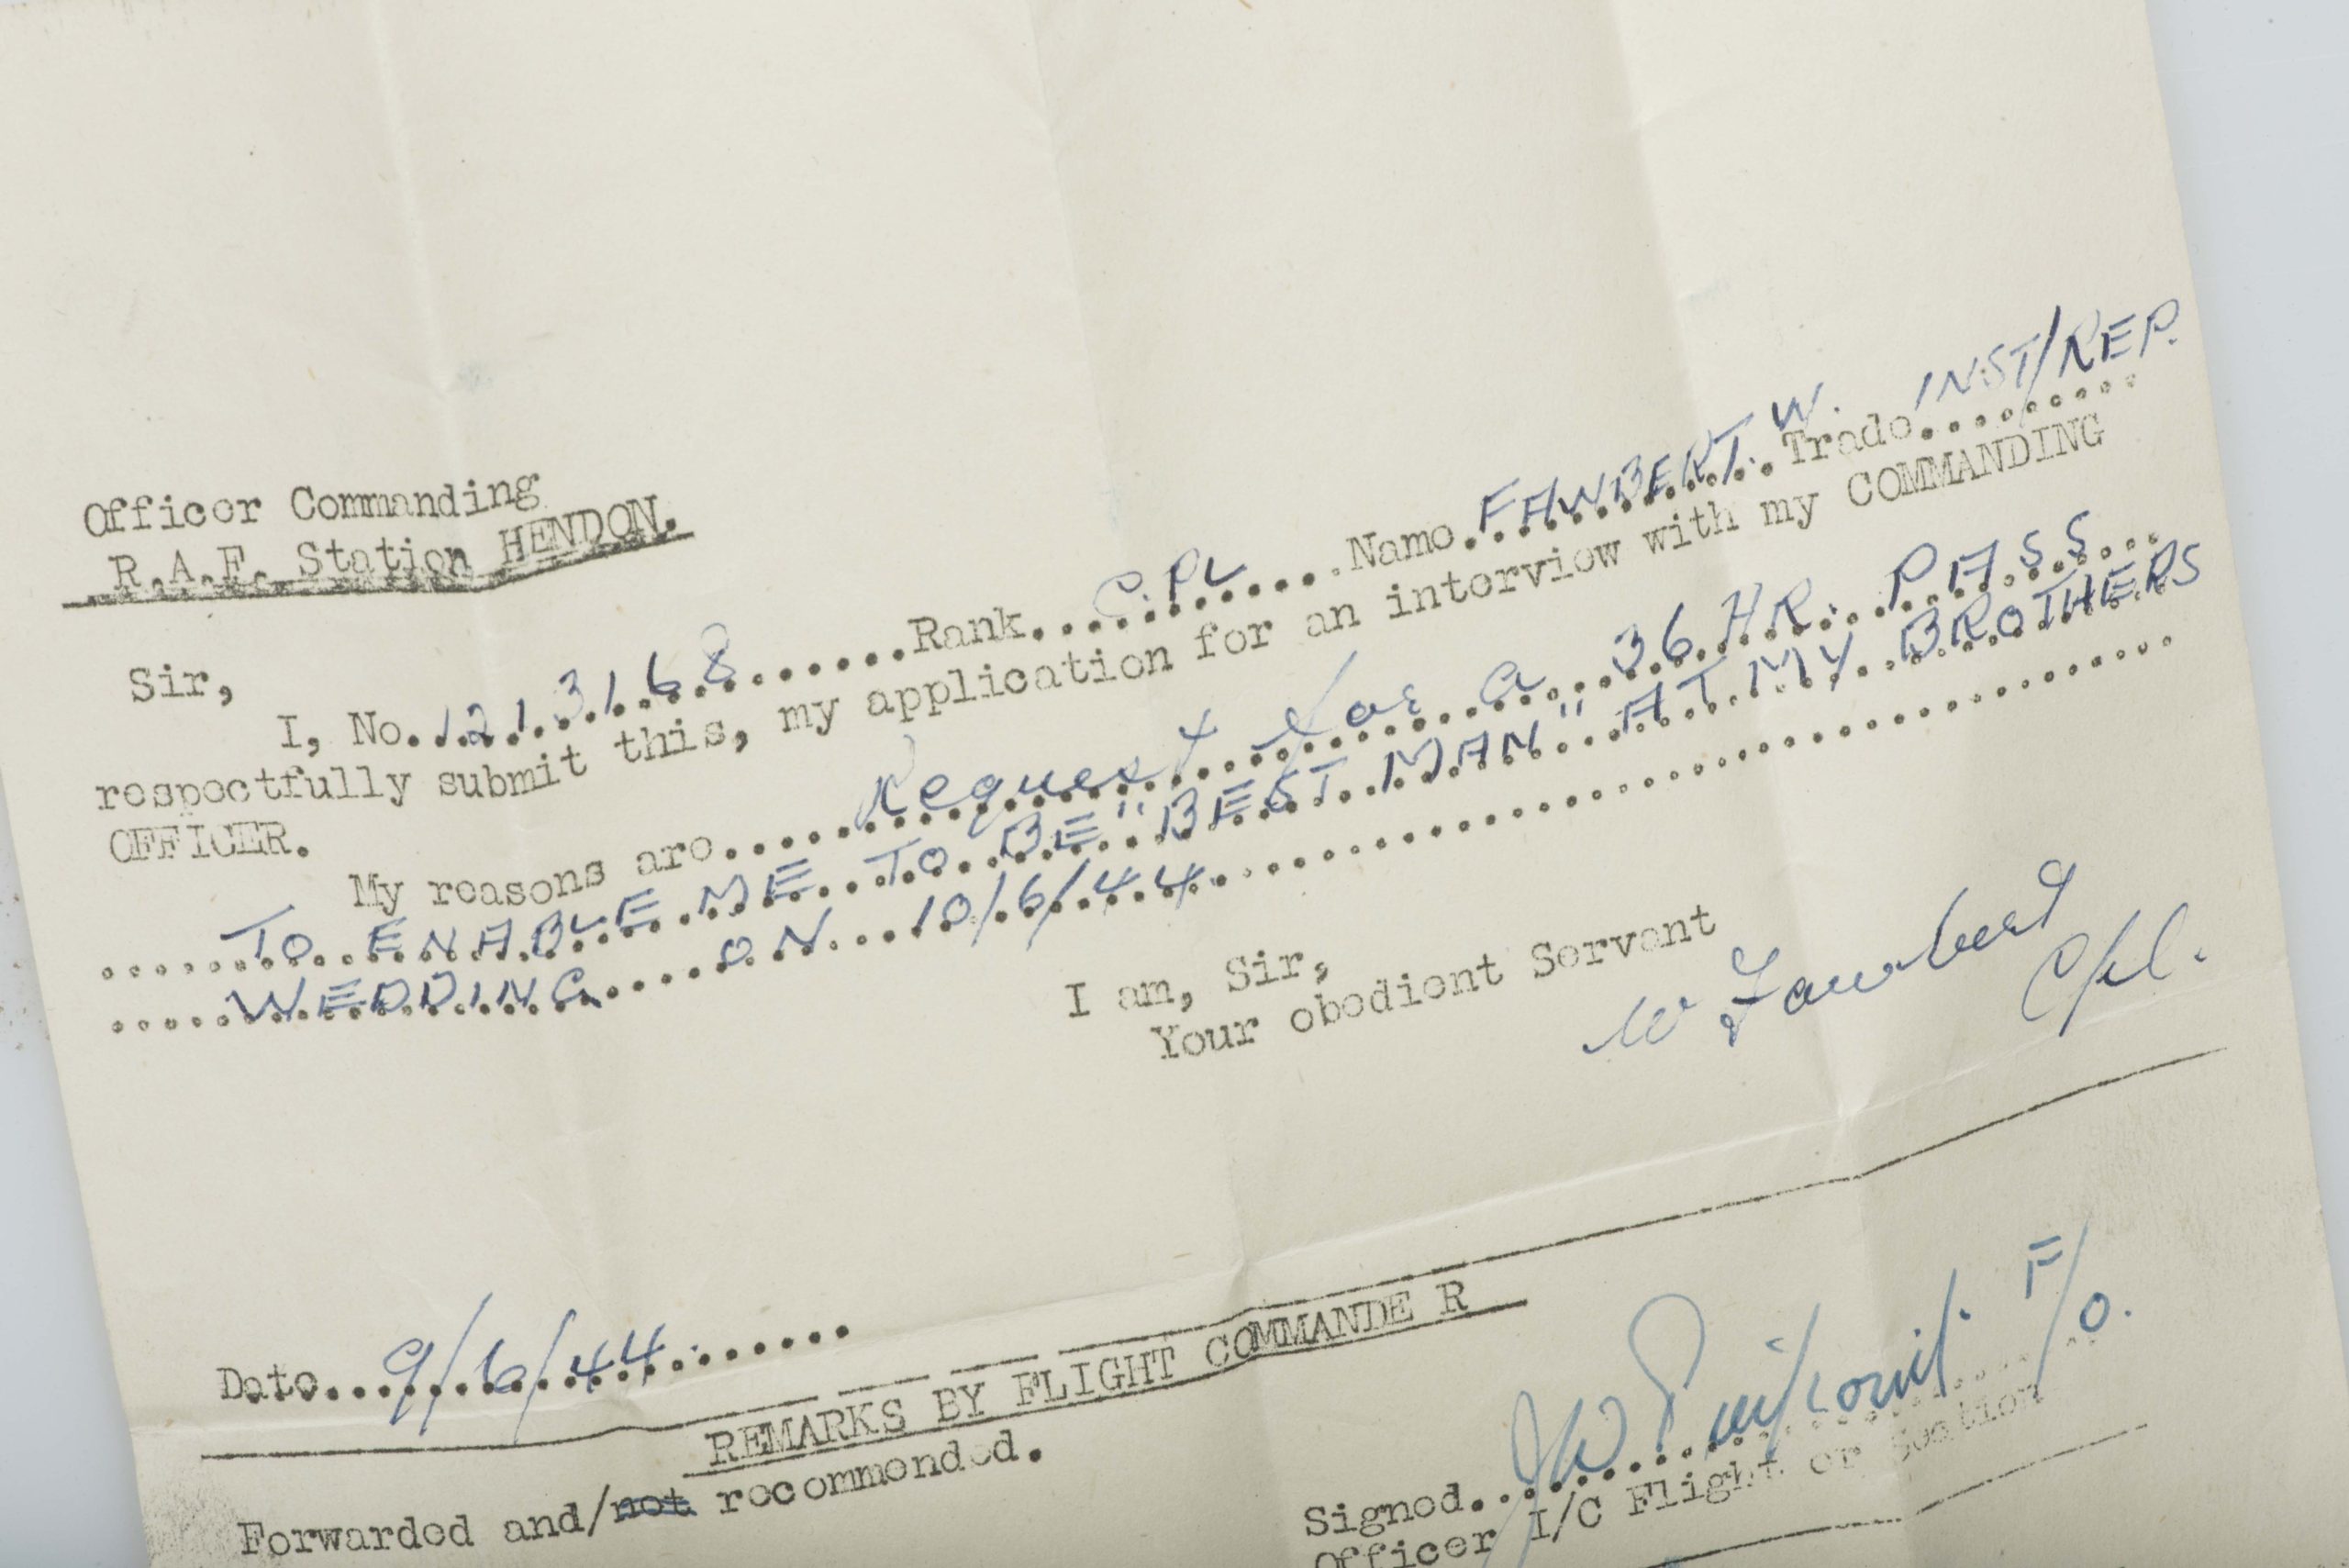 Officer Commanding
R.A.F. Station HENDON.
Sir,
I, No. 1213168 ........ Rank.... C.PL ........ Name. FAWBERT. W. Trade INST/REP.
respectfully submit this, my application for an interview with my COMMANDING
OFFICER.
My reasons are...... Request for a 36 HR. PASS ...
...... TO ENABLE ME TO BE "BEST MAN" AT MY BROTHERS
..... WEDDING .... ON ... 10/6/44 ..........
I am, Sir,
Your obedient Servant
W Fawbert
Cpl.
Date... 9/6/44 ........
REMARKS BY FLIGHT COMMANDE R
Forwarded and/not recommended.
Signed.. F/O.
Officer I/C Flight or Section